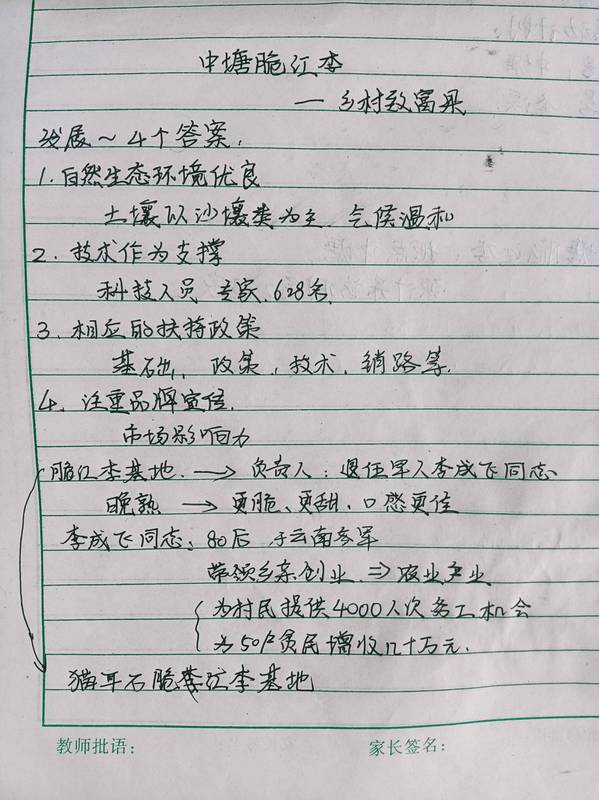 中塘脆红李
— 乡村致富果
发展～4个答案.
1.自然生态环境优良
土壤以沙壤类为主、气候温和
2.技术作为支撑
科技人员 专家.628名.
3.相应的扶持政策
基础、政策、技术、销路等.
4.注重品牌宣传.
市场影响力
脆红李基地.→负责人：退伍军人李成飞同志
晚熟→更脆、更甜、口感更佳
李成飞同志：80后 于云南参军
带领乡亲创业⇒农业产业
为村民提供4000人次务工机会
为50户贫民增收几十万元.
猫耳石脆红李基地
教师批语： 家长签名：